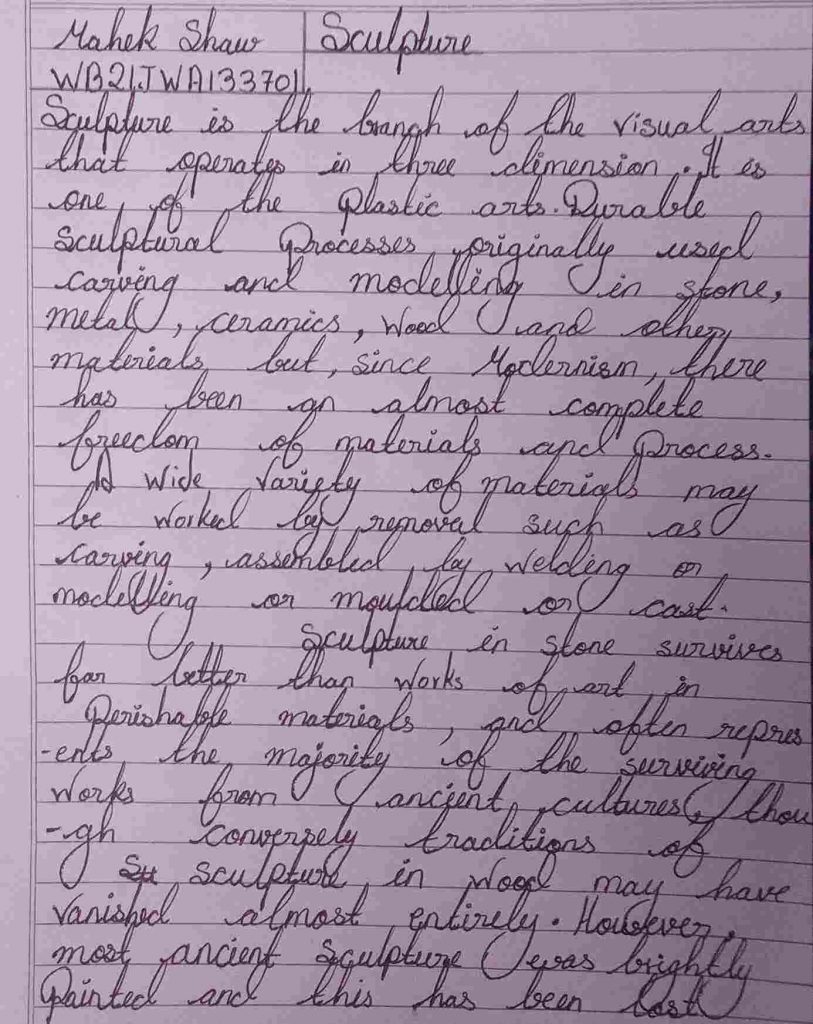 Mahek Shaw | Sculpture
WB21JWA133701
Sculpture is the branch of the visual arts
that operates in three dimension. It is
one of the plastic arts. Durable
sculptural processes originally used
carving and modelling in stone,
metal, ceramics, wood and other
materials but, since Modernism, there
has been an almost complete
freedom of materials and process.
A wide variety of materials may
be worked by removal such as
carving, assembled by welding or
modelling or moulded or cast.
Sculpture in stone survives
far better than works of art in
perishable materials, and often repres
-ents the majority of the surviving
works from ancient cultures, thou
-gh conversely traditions of
sculpture in wood may have
vanished almost entirely. However,
most ancient sculpture was brightly
painted and this has been lost